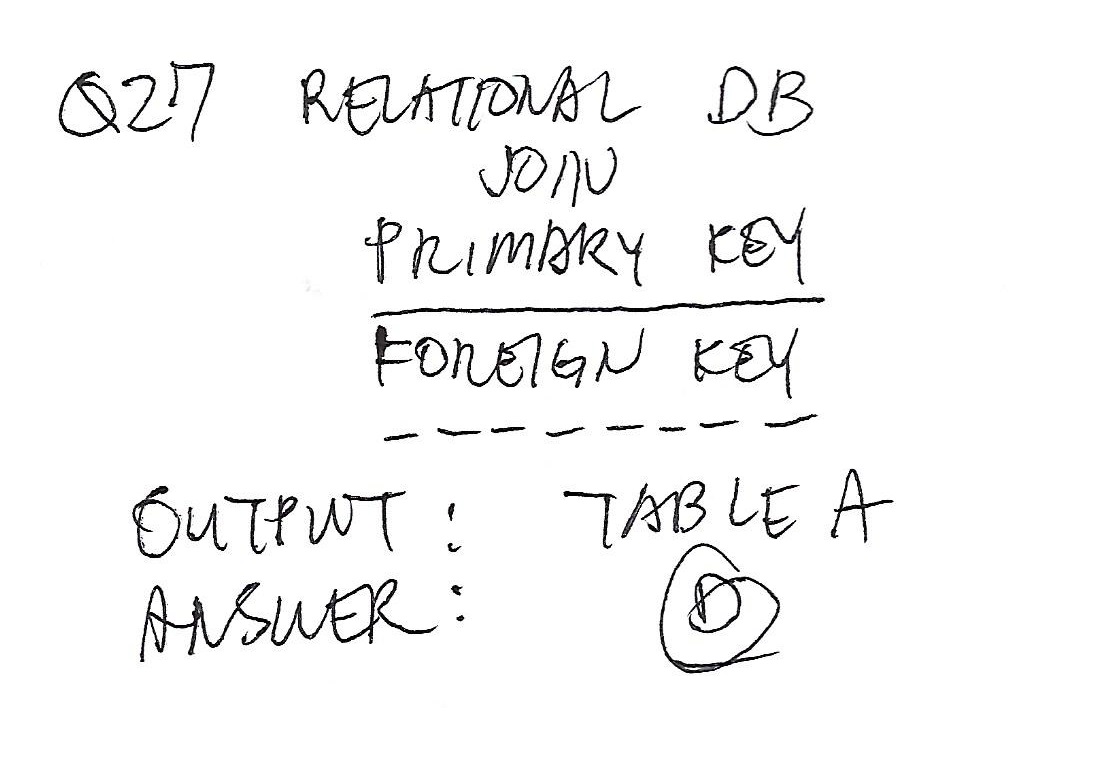 Q27 RELATIONAL DB
JOIN
PRIMARY KEY
FOREIGN KEY
OUTPUT: TABLE A
ANSWER: D